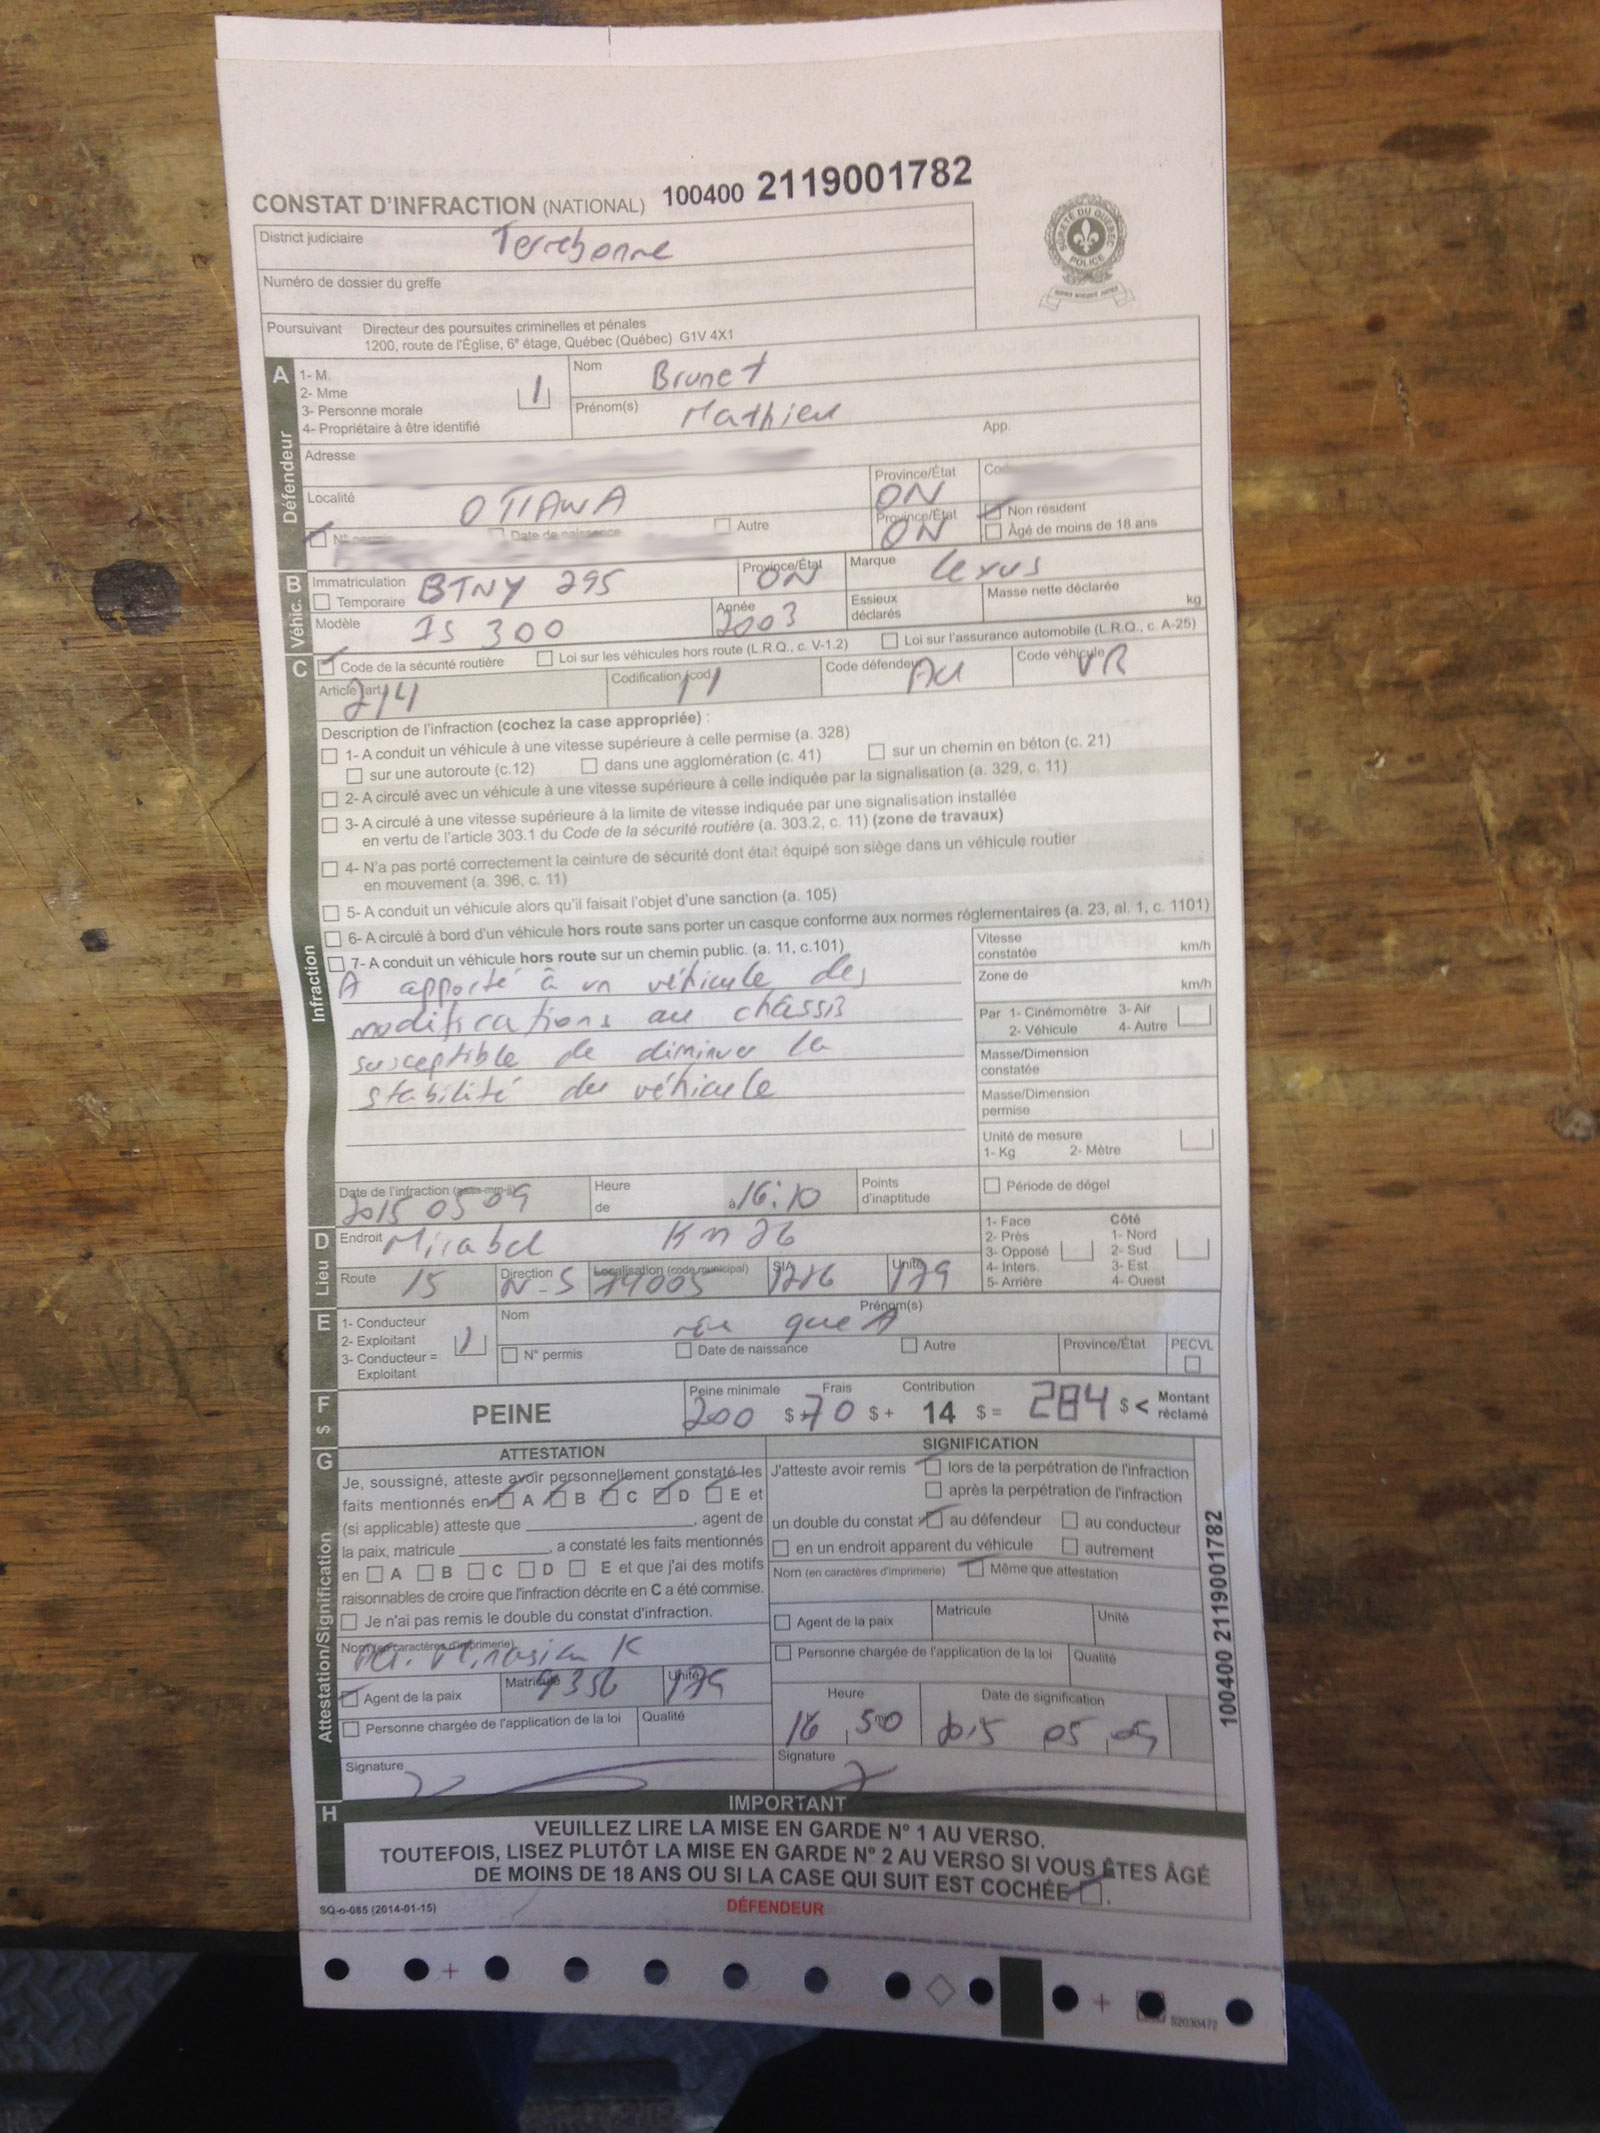 CONSTAT D'INFRACTION (NATIONAL) 100400 2119001782
SÛRETÉ DU QUÉBEC
POLICE
District judiciaire Terrebonne
Numéro de dossier du greffe
Poursuivant Directeur des poursuites criminelles et pénales
1200, route de l'Église, 6e étage, Québec (Québec) G1V 4X1
A
Défendeur
1- M.
2- Mme
3- Personne morale
4- Propriétaire à être identifié
1
Nom Brunet
Prénom(s) Mathieu
App.
Adresse
Localité OTTAWA
Province/État ON
Non résident
N° permis Date de naissance Autre
Province/État ON
Âgé de moins de 18 ans
B
Véhic.
Immatriculation BTNY 295
Temporaire
Province/État ON
Marque Lexus
Modèle IS 300
Année 2003
Essieux déclarés
Masse nette déclarée kg
C
Infraction
Code de la sécurité routière Loi sur les véhicules hors route (L.R.Q., c. V-1.2) Loi sur l'assurance automobile (L.R.Q., c. A-25)
Article (art.) 214 Codification (cod.) 11 Code défendeur AU Code véhicule VR
Description de l'infraction (cochez la case appropriée) :
1- A conduit un véhicule à une vitesse supérieure à celle permise (a. 328)
sur une autoroute (c.12) dans une agglomération (c. 41) sur un chemin en béton (c. 21)
2- A circulé avec un véhicule à une vitesse supérieure à celle indiquée par la signalisation (a. 329, c. 11)
3- A circulé à une vitesse supérieure à la limite de vitesse indiquée par une signalisation installée
en vertu de l'article 303.1 du Code de la sécurité routière (a. 303.2, c. 11) (zone de travaux)
4- N'a pas porté correctement la ceinture de sécurité dont était équipé son siège dans un véhicule routier
en mouvement (a. 396, c. 11)
5- A conduit un véhicule alors qu'il faisait l'objet d'une sanction (a. 105)
6- A circulé à bord d'un véhicule hors route sans porter un casque conforme aux normes réglementaires (a. 23, al. 1, c. 1101)
7- A conduit un véhicule hors route sur un chemin public. (a. 11, c.101)
A apporté à un véhicule des
modifications au châssis
susceptible de diminuer la
stabilité du véhicule
Vitesse constatée km/h
Zone de km/h
Par 1- Cinémomètre 3- Air
2- Véhicule 4- Autre
Masse/Dimension constatée
Masse/Dimension permise
Unité de mesure
1- Kg 2- Mètre
Date de l'infraction (aaaa-mm-jj) 2015 05 09
Heure de à 16:10
Points d'inaptitude
Période de dégel
D
Lieu
Endroit Mirabel Km 26
Route 15 Direction N-S Localisation (code municipal) 74005 SIA Unité 179
1- Face
2- Près
3- Opposé
4- Inters.
5- Arrière
Côté
1- Nord
2- Sud
3- Est
4- Ouest
E
1- Conducteur
2- Exploitant
3- Conducteur =
Exploitant
1
Nom Prénom(s)
que A
N° permis Date de naissance Autre Province/État PECVL
F
$
PEINE
Peine minimale Frais Contribution
200 $ + 70 $ + 14 $ = 284 $ < Montant réclamé
G
Attestation/Signification
ATTESTATION
Je, soussigné, atteste avoir personnellement constaté les
faits mentionnés en A B C D E et
(si applicable) atteste que , agent de
la paix, matricule , a constaté les faits mentionnés
en A B C D E et que j'ai des motifs
raisonnables de croire que l'infraction décrite en C a été commise.
Je n'ai pas remis le double du constat d'infraction.
Nom (en caractères d'imprimerie)
Agent de la paix Matricule Unité 179
Personne chargée de l'application de la loi Qualité
Signature
SIGNIFICATION
J'atteste avoir remis lors de la perpétration de l'infraction
après la perpétration de l'infraction
un double du constat au défendeur au conducteur
en un endroit apparent du véhicule autrement
Nom (en caractères d'imprimerie) Même que attestation
Agent de la paix Matricule Unité
Personne chargée de l'application de la loi Qualité
Heure Date de signification
16 50 2015 05 09
Signature
100400 2119001782
H
IMPORTANT
VEUILLEZ LIRE LA MISE EN GARDE N° 1 AU VERSO.
TOUTEFOIS, LISEZ PLUTÔT LA MISE EN GARDE N° 2 AU VERSO SI VOUS ÊTES ÂGÉ
DE MOINS DE 18 ANS OU SI LA CASE QUI SUIT EST COCHÉE .
SQ-o-085 (2014-01-15)
DÉFENDEUR
S2030472